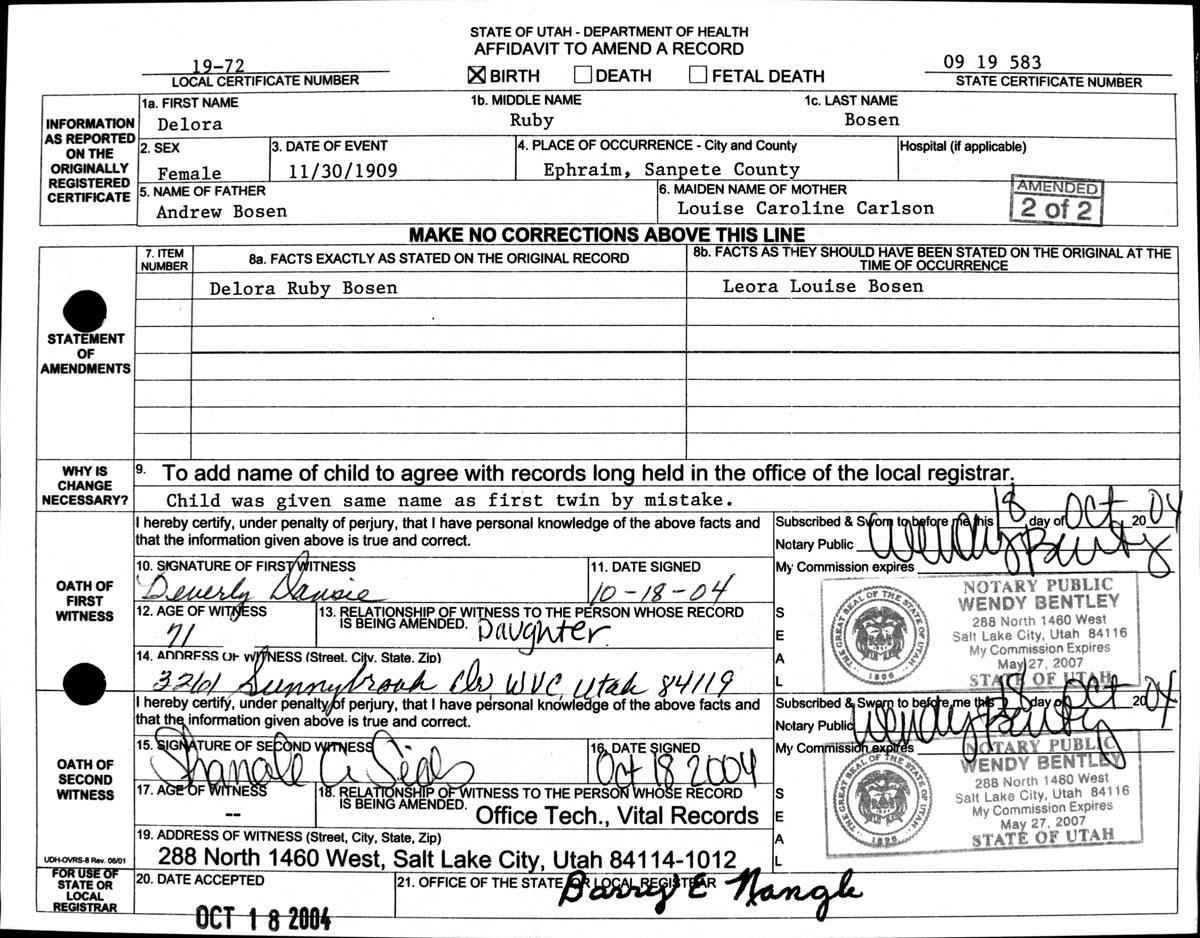 STATE OF UTAH - DEPARTMENT OF HEALTH
AFFIDAVIT TO AMEND A RECORD
19-72
LOCAL CERTIFICATE NUMBER
☒ BIRTH ☐ DEATH ☐ FETAL DEATH
09 19 583
STATE CERTIFICATE NUMBER
INFORMATION AS REPORTED ON THE ORIGINALLY REGISTERED CERTIFICATE
1a. FIRST NAME 1b. MIDDLE NAME 1c. LAST NAME
Delora Ruby Bosen
2. SEX 3. DATE OF EVENT 4. PLACE OF OCCURRENCE - City and County Hospital (if applicable)
Female 11/30/1909 Ephraim, Sanpete County
5. NAME OF FATHER 6. MAIDEN NAME OF MOTHER
Andrew Bosen Louise Caroline Carlson
AMENDED
2 of 2
MAKE NO CORRECTIONS ABOVE THIS LINE
STATEMENT OF AMENDMENTS
7. ITEM NUMBER 8a. FACTS EXACTLY AS STATED ON THE ORIGINAL RECORD 8b. FACTS AS THEY SHOULD HAVE BEEN STATED ON THE ORIGINAL AT THE TIME OF OCCURRENCE
Delora Ruby Bosen Leora Louise Bosen
WHY IS CHANGE NECESSARY?
9. To add name of child to agree with records long held in the office of the local registrar.
Child was given same name as first twin by mistake.
OATH OF FIRST WITNESS
I hereby certify, under penalty of perjury, that I have personal knowledge of the above facts and
that the information given above is true and correct.
10. SIGNATURE OF FIRST WITNESS 11. DATE SIGNED
Beverly 10-18-04
12. AGE OF WITNESS 13. RELATIONSHIP OF WITNESS TO THE PERSON WHOSE RECORD
IS BEING AMENDED.
71 Daughter
14. ADDRESS OF WITNESS (Street, City, State, Zip)
3261 Sunnybrook Dr, WVC, Utah 84119
Subscribed & Sworn to before me this 18 day of Oct 2004
Notary Public Wendy Bentley
My Commission expires
SEAL
THE GREAT SEAL OF THE STATE OF UTAH
1896
NOTARY PUBLIC
WENDY BENTLEY
288 North 1460 West
Salt Lake City, Utah 84116
My Commission Expires
May 27, 2007
STATE OF UTAH
OATH OF SECOND WITNESS
I hereby certify, under penalty of perjury, that I have personal knowledge of the above facts and
that the information given above is true and correct.
15. SIGNATURE OF SECOND WITNESS 16. DATE SIGNED
Oct 18 2004
17. AGE OF WITNESS 18. RELATIONSHIP OF WITNESS TO THE PERSON WHOSE RECORD
IS BEING AMENDED.
-- Office Tech., Vital Records
19. ADDRESS OF WITNESS (Street, City, State, Zip)
288 North 1460 West, Salt Lake City, Utah 84114-1012
Subscribed & Sworn to before me this 18 day of Oct 2004
Notary Public Wendy Bentley
My Commission expires
SEAL
THE GREAT SEAL OF THE STATE OF UTAH
1896
NOTARY PUBLIC
WENDY BENTLEY
288 North 1460 West
Salt Lake City, Utah 84116
My Commission Expires
May 27, 2007
STATE OF UTAH
UDH-OVRS-8 Rev. 06/01
FOR USE OF STATE OR LOCAL REGISTRAR
20. DATE ACCEPTED 21. OFFICE OF THE STATE OR LOCAL REGISTRAR
OCT 18 2004 Barry E Nangle